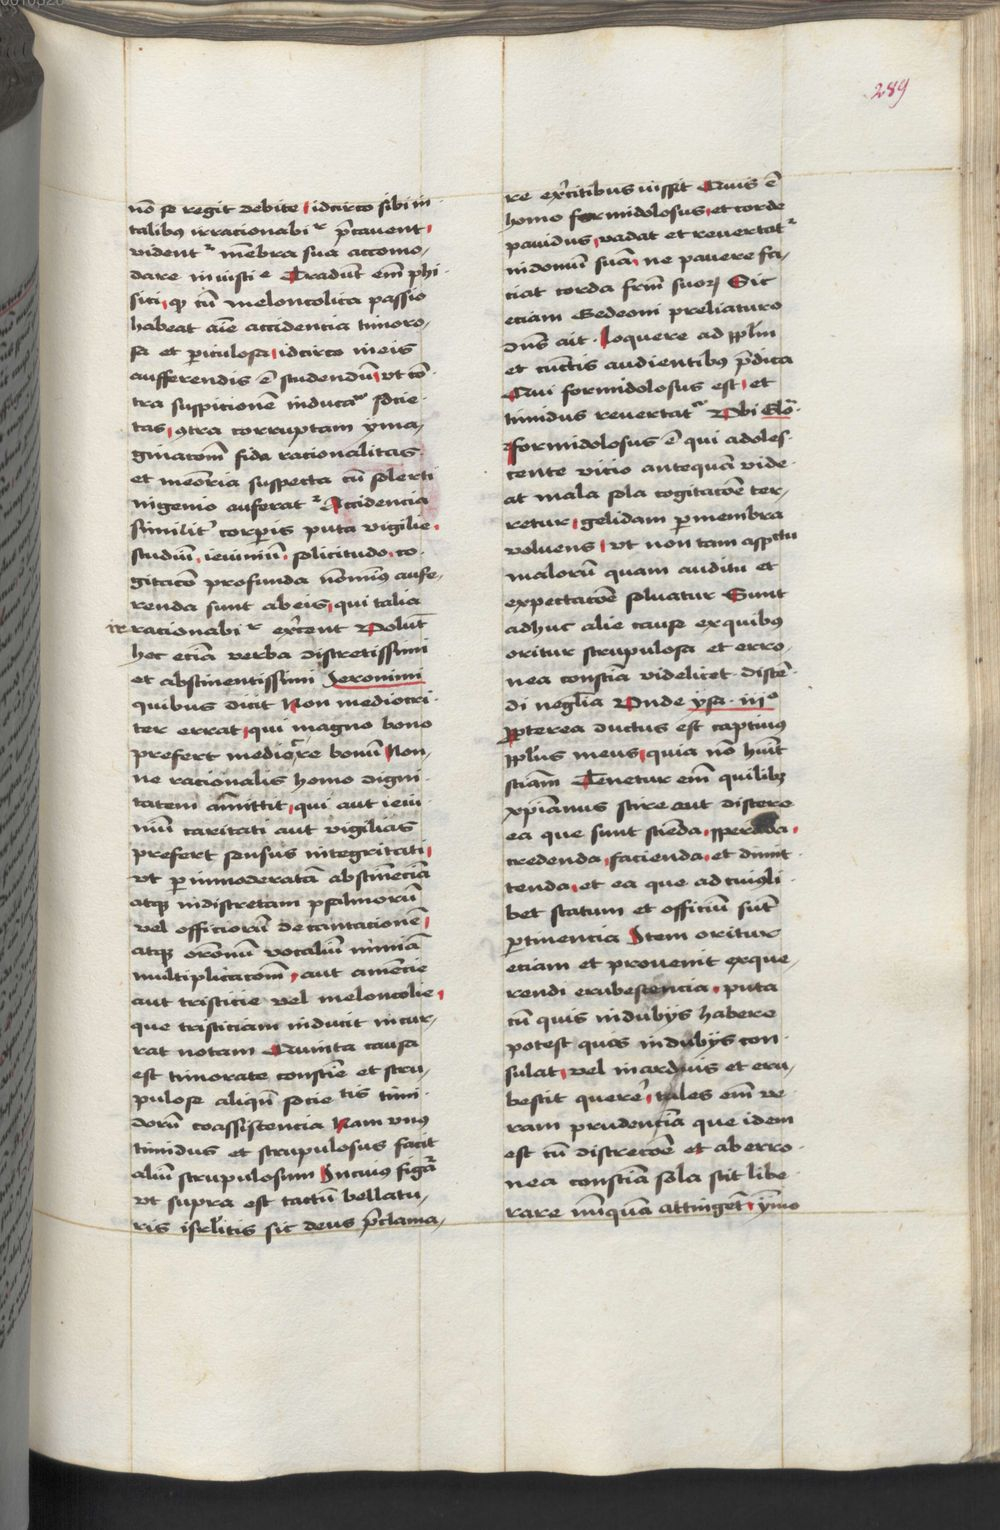 289
nō se regit debite idcirco sibi in
talibus irracionabiᵣ p̄cauent
videntᵣ mēbra sua accomo-
dare iniusti e Tradūt em̄ phi
sici qꝫ cū meloncolica passio
habeat aīe accidencia timoro-
sa et ꝑiculosa idcirco in eis
aufferendis ē studendū vt cō
tra suspicionē inducaᵗ socie
tas ꝯtra corruptam yma-
ginacom̄ fida racionalitas
et meōria suspecta cū solerti
ingenio auferatᵣ Accidencia
similit̉ corꝑis puta vigilie
studiū ieiuniū solicitudo co
gitacō profunda nōminꝰ aufe-
renda sunt ab eis qui talia
irracionabiᵣ ex̄cent Volūt
hec eciā verba discretissimi
et abstinentissimi Jeronimi
quibus dicit Non mediocri
ter errat qui magno bono
prefert mediocre bonū Non-
ne racionalis homo digni
tatem am̄ittit qui aut ieiu
niū caritati aut vigilias
prefert sensus integritati
vt ꝑ inmoderatā abstinēciā
atqꝫ indiscretam psalmorū
vel officiorū decantacionē
atqꝫ orōnū vocaliū nimiā
multiplicacom̄ aut amēcie
aut tristicie vel meloncolie
que tristiciam inducit incur-
rat notam Quinta causa
est timorate consciē et scru-
pulose aliqn̄ socie tis timi
dorū coassistencia Nam vnꝰ
timidus et scrupulosus facit
aliū scrupulosum In cuiꝰ figā
vt supra est tactū bellatu-
ris isrl̄itis sic deus p̄clama-
re ex̄citibus iussit Quis ē
homo formidolosus et corde
pauidus vadat et reuertatᵣ
in domū suā ne pauere fa-
ciat corda frm̄ suoꝝ Sic
eciam Gedeoni preliaturo
dn̄s ait loquere ad ppl̄m
et cūctis audientibꝰ p̄dica
Qui formidolosus est et
timidus reuertatᵣ Vbi Glō
formidolosus ē qui adoles
cente vicio antequā vide
at mala sola cogitacōe ter-
retur gelidam ꝑ membra
voluens vt non tam aspectu
malorū quam auditu et
expectacōe soluatur Sunt
adhuc alie cause ex quibus
oritur scrupulosa et erro
nea consciā videlicet discē
di negl̄ia Vnde ysa iiiᵒ
ꝓpterea ductus est captiuꝰ
ppl̄us meus quia nō hūit
sciam̄ Tenetur em̄ quilibꝫ
xp̄ianus scire aut discere
ea que sunt sciēda speranda
credenda facienda et dimit
tenda et ea que ad cuiusli
bet statum et officiū sūt
ꝑtinencia Item oritur
eciam et prouenit ex que-
rendi erubescencia puta
cū quis in dubijs habere
potest quos in dubijs con
sulat vel in arduis et eru
bescit querē tales em̄ ve
ram prudenciā que idem
est cū discrecōe et ab erro
nea consciā sola scit libe
rare nūquā attingēt ȳmo